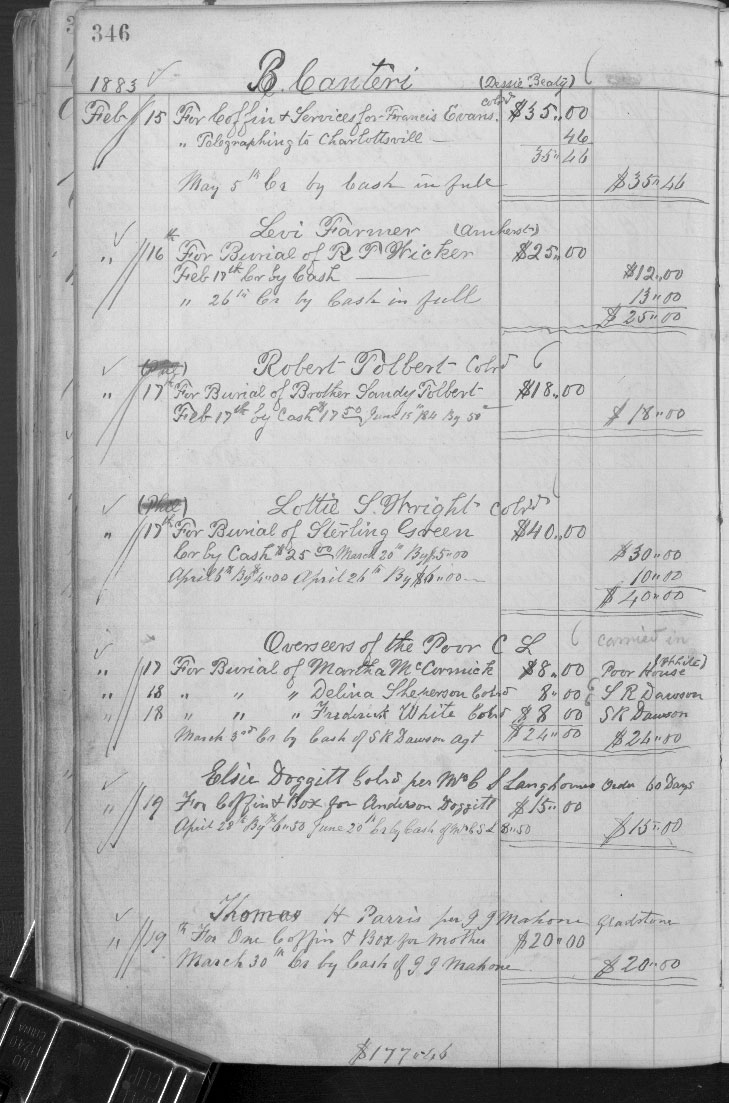 346
1883 B. Canteri (Dessie Beaty)
Feb 15 For Coffin & Services for Francis Evans. cold $35.00
" Telegraphing to Charlottsvill — 46
35.46
May 5th Cr by Cash in full $35.46
Levi Farmer (Amherst)
" 16th For Burial of R P Wicker $25.00
Feb 17th Cr by Cash — $12.00
" 26th Cr by Cash in full 13.00
$25.00
Robert Tolbert Cold
" 17th For Burial of Brother Sandy Tolbert $18.00
Feb 17th by Cash $17 50 June 15" 84 By 50c $18.00
Lottie S. Wright cold
" 17th For Burial of Sterling Green $40.00
Cr by Cash $25 00 March 20th By $5.00 $30.00
April 6th By $4.00 April 26th By $6.00 10.00
$40.00
Overseers of the Poor C L carried in
" 17 For Burial of Martha McCormick $8.00 Poor House (White)
" 18 " " " Delina Cold 8.00 S R Dawson
" 18 " " " Frederick White Cold $8 00 S R Dawson
March 3rd Cr by Cash of S R Dawson Agt $24.00 $24.00
Elsie Doggitt Cold per Mr C S Langhornes Order 60 Days
" 19 For Coffin & Box for Anderson Doggitt $15.00
April 28th By $6.50 June 20th Cr by Cash of Mr C S L 8.50 $15.00
Thomas H Parris per J J Mahone Gladstone
" 19th For One Coffin & Box for Mother $20.00
March 30th Cr by Cash of J J Mahone $20.00
$177.46